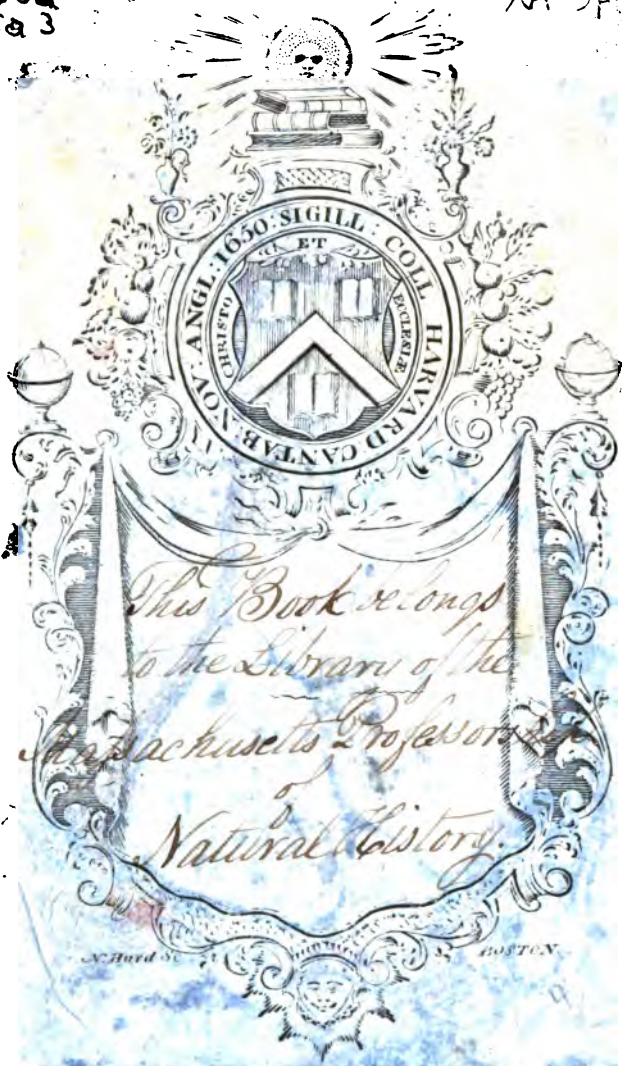 a 3
SIGILL : COLL HARVARD CANTAB: NOV. ANGL: 1650:
CHRISTO ET ECCLESIÆ
This Book belongs
to the Library of the
Massachusetts Professorship
of
Natural History.
N. Hurd Sc BOSTON